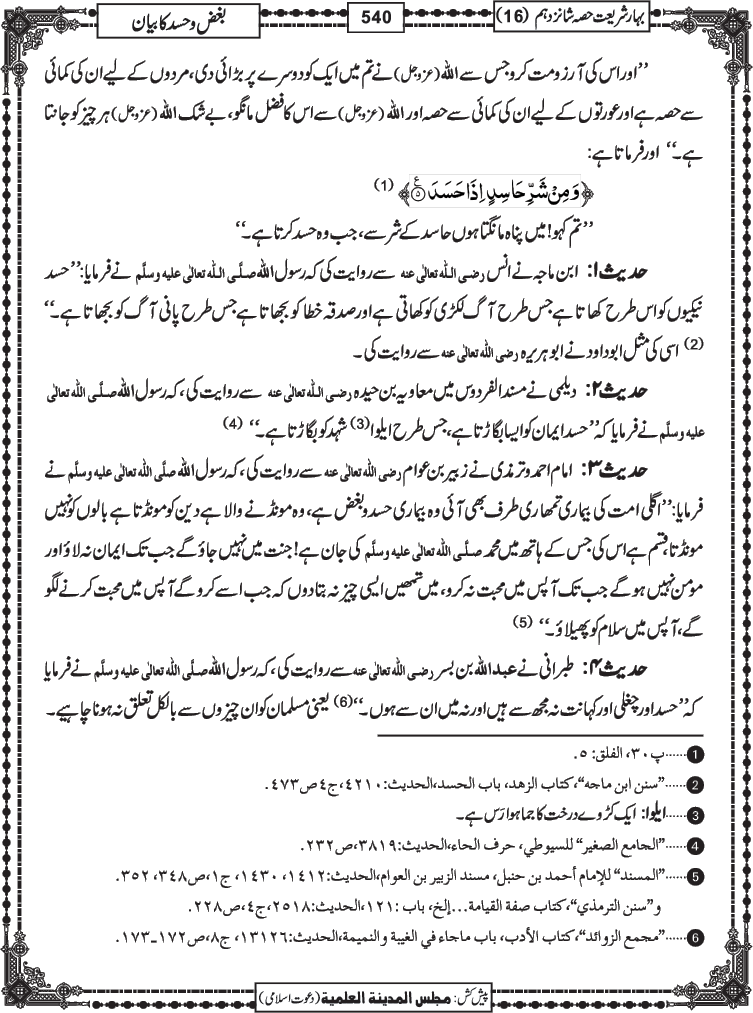 بہارِ شریعت حصہ شانزدہم (16)
540
بغض و حسد کا بیان
’’اور اس کی آرزو مت کرو جس سے اللہ (عزوجل) نے تم میں ایک کو دوسرے پر بڑائی دی، مردوں کے لیے ان کی کمائی
سے حصہ ہے اور عورتوں کے لیے ان کی کمائی سے حصہ اور اللہ (عزوجل) سے اس کا فضل مانگو، بے شک اللہ (عزوجل) ہر چیز کو جانتا
ہے۔‘‘ اور فرماتا ہے:
﴿وَ مِنْ شَرِّ حَاسِدٍ اِذَا حَسَدَ۠ ۝۵﴾ (1)
’’تم کہو! میں پناہ مانگتا ہوں حاسد کے شر سے، جب وہ حسد کرتا ہے۔‘‘
حدیث ۱: ابن ماجہ نے انس رضی اللہ تعالٰی عنہ سے روایت کی کہ رسول اللہ صلَّی اللہ تعالٰی علیہ وسلَّم نے فرمایا: ’’حسد
نیکیوں کو اس طرح کھاتا ہے جس طرح آگ لکڑی کو کھاتی ہے اور صدقہ خطا کو بجھاتا ہے جس طرح پانی آگ کو بجھاتا ہے۔‘‘
(2) اسی کی مثل ابوداود نے ابوہریرہ رضی اللہ تعالٰی عنہ سے روایت کی۔
حدیث ۲: دیلمی نے مسند الفردوس میں معاویہ بن حیدہ رضی اللہ تعالٰی عنہ سے روایت کی، کہ رسول اللہ صلَّی اللہ تعالٰی
علیہ وسلَّم نے فرمایا کہ ’’حسد ایمان کو ایسا بگاڑتا ہے، جس طرح ایلوا (3) شہد کو بگاڑتا ہے۔‘‘ (4)
حدیث ۳: امام احمد و ترمذی نے زبیر بن عوام رضی اللہ تعالٰی عنہ سے روایت کی، کہ رسول اللہ صلَّی اللہ تعالٰی علیہ وسلَّم نے
فرمایا: ’’اگلی امت کی بیماری تمہاری طرف بھی آئی وہ بیماری حسد و بغض ہے، وہ مونڈنے والا ہے دین کو مونڈتا ہے بالوں کو نہیں
مونڈتا، قسم ہے اس کی جس کے ہاتھ میں محمد صلَّی اللہ تعالٰی علیہ وسلَّم کی جان ہے! جنت میں نہیں جاؤ گے جب تک ایمان نہ لاؤ اور
مومن نہیں ہو گے جب تک آپس میں محبت نہ کرو، میں تمھیں ایسی چیز نہ بتا دوں کہ جب اسے کرو گے آپس میں محبت کرنے لگو
گے، آپس میں سلام کو پھیلاؤ۔‘‘ (5)
حدیث ۴: طبرانی نے عبداللہ بن بسر رضی اللہ تعالٰی عنہ سے روایت کی، کہ رسول اللہ صلَّی اللہ تعالٰی علیہ وسلَّم نے فرمایا
کہ ’’حسد اور چغلی اور کہانت نہ مجھ سے ہیں اور نہ میں ان سے ہوں۔‘‘ (6) یعنی مسلمان کو ان چیزوں سے بالکل تعلق نہ ہونا چاہیے۔
1 ......پ۳۰، الفلق: ۵.
2 ......”سنن ابن ماجه“، کتاب الزهد، باب الحسد، الحدیث: ۴۲۱۰، ج٤ ص۴۷۳.
3 ......ایلوا: ایک کڑوے درخت کا جما ہوا رَس ہے۔
4 ......”الجامع الصغیر“ للسیوطي، حرف الحاء، الحدیث: ۳۸۱۹، ص۲۳۲.
5 ......”المسند“ للإمام أحمد بن حنبل، مسند الزبیر بن العوام، الحدیث: ۱۴۱۲، ۱۴۳۰، ج۱، ص۳۴۸، ۳۵۲.
و ”سنن الترمذي“، کتاب صفة القیامة...إلخ، باب: ۱۲۱، الحدیث: ۲۵۱۸، ج٤، ص۲۲۸.
6 ......”مجمع الزوائد“، کتاب الأدب، باب ماجاء في الغیبة و النمیمة، الحدیث: ۱۳۱۲۶، ج۸، ص۱۷۲-۱۷۳.
پیش کش: مجلس المدینة العلمیة (دعوت اسلامی)